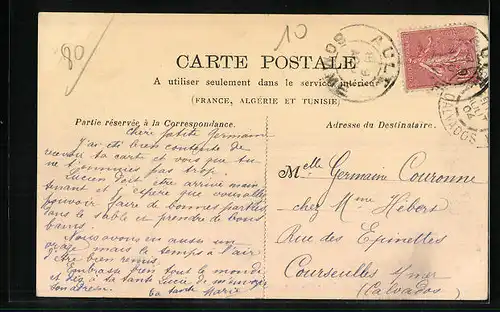 80
10
AULT
SOMME
CARTE POSTALE
A utiliser seulement dans le service intérieur
(FRANCE, ALGÉRIE ET TUNISIE)
Partie réservée à la Correspondance.
Adresse du Destinataire.
Chère petite Germaine
J'ai été bien contente de
recevoir ta carte et vois que tu
ne t'ennuies pas trop.
Lucien doit être arrivé main
tenant et j'espère que vous allez
pouvoir faire de bonnes parties
dans le sable et prendre de bons
bains.
Nous avons eu aussi un
orage mais le temps a l'air
d'être bien remis.
Embrasse bien tout le monde
et dis à ta tante Lucie de m'envoyer
son adresse. Ta tante Marie
Melle Germaine Couronne
chez Mme Hébert
Rue des Epinettes
Courseulles s/mer
(Calvados)
CALVADOS